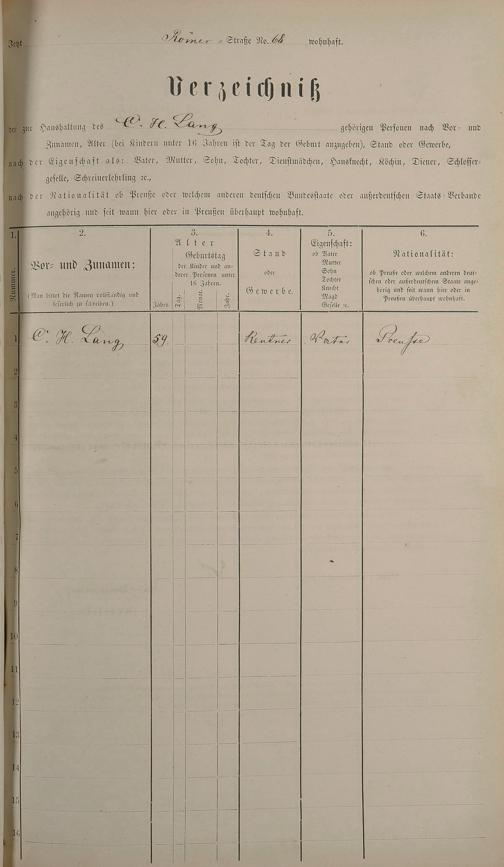 Jetzt Römer-Straße No. 68 wohnhaft.
Verzeichniß
der zur Haushaltung des C. H. Lang gehörigen Personen nach Vor- und
Zunamen, Alter (bei Kindern unter 16 Jahren ist der Tag der Geburt anzugeben), Stand oder Gewerbe,
nach der Eigenschaft als: Vater, Mutter, Sohn, Tochter, Dienstmädchen, Hausknecht, Köchin, Diener, Schlosser-
geselle, Schreinerlehrling ꝛc.,
nach der Nationalität ob Preuße oder welchem anderen deutschen Bundesstaate oder außerdeutschen Staats-Verbande
angehörig und seit wann hier oder in Preußen überhaupt wohnhaft.
1.
Nummer.
2.
Vor- und Zunamen:
(Man bittet die Namen vollständig und
leserlich zu schreiben.)
3.
Alter
Geburtstag
der Kinder und an-
derer Personen unter
16 Jahren.
Jahre
Tag.
Monat.
Jahr.
4.
Stand
oder
Gewerbe.
5.
Eigenschaft:
ob Vater
Mutter
Sohn
Tochter
Knecht
Magd
Geselle ꝛc.
6.
Nationalität:
ob Preuße oder welchem anderen deut-
schen oder außerdeutschen Staate ange-
hörig und seit wann hier oder in
Preußen überhaupt wohnhaft.
1 C. H. Lang 59 Rentner Vater Preusse
2
3
4
5
6
7
8
9
10
11
12
13
14
15
16